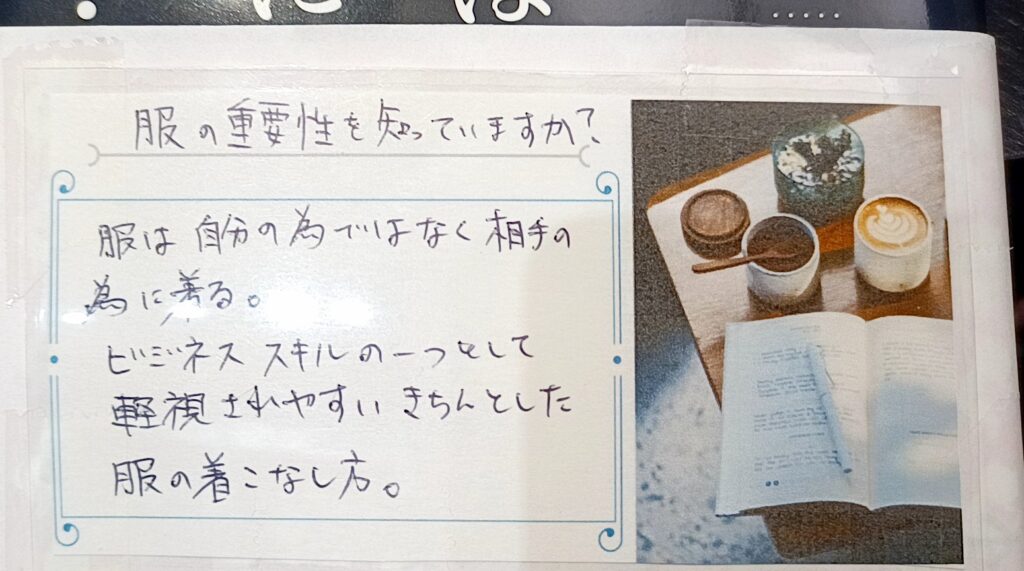 に は
服の重要性を知っていますか?
服は自分の為ではなく相手の
為に着る。
ビジネス スキルの一つとして
軽視されやすい きちんとした
服の着こなし方。